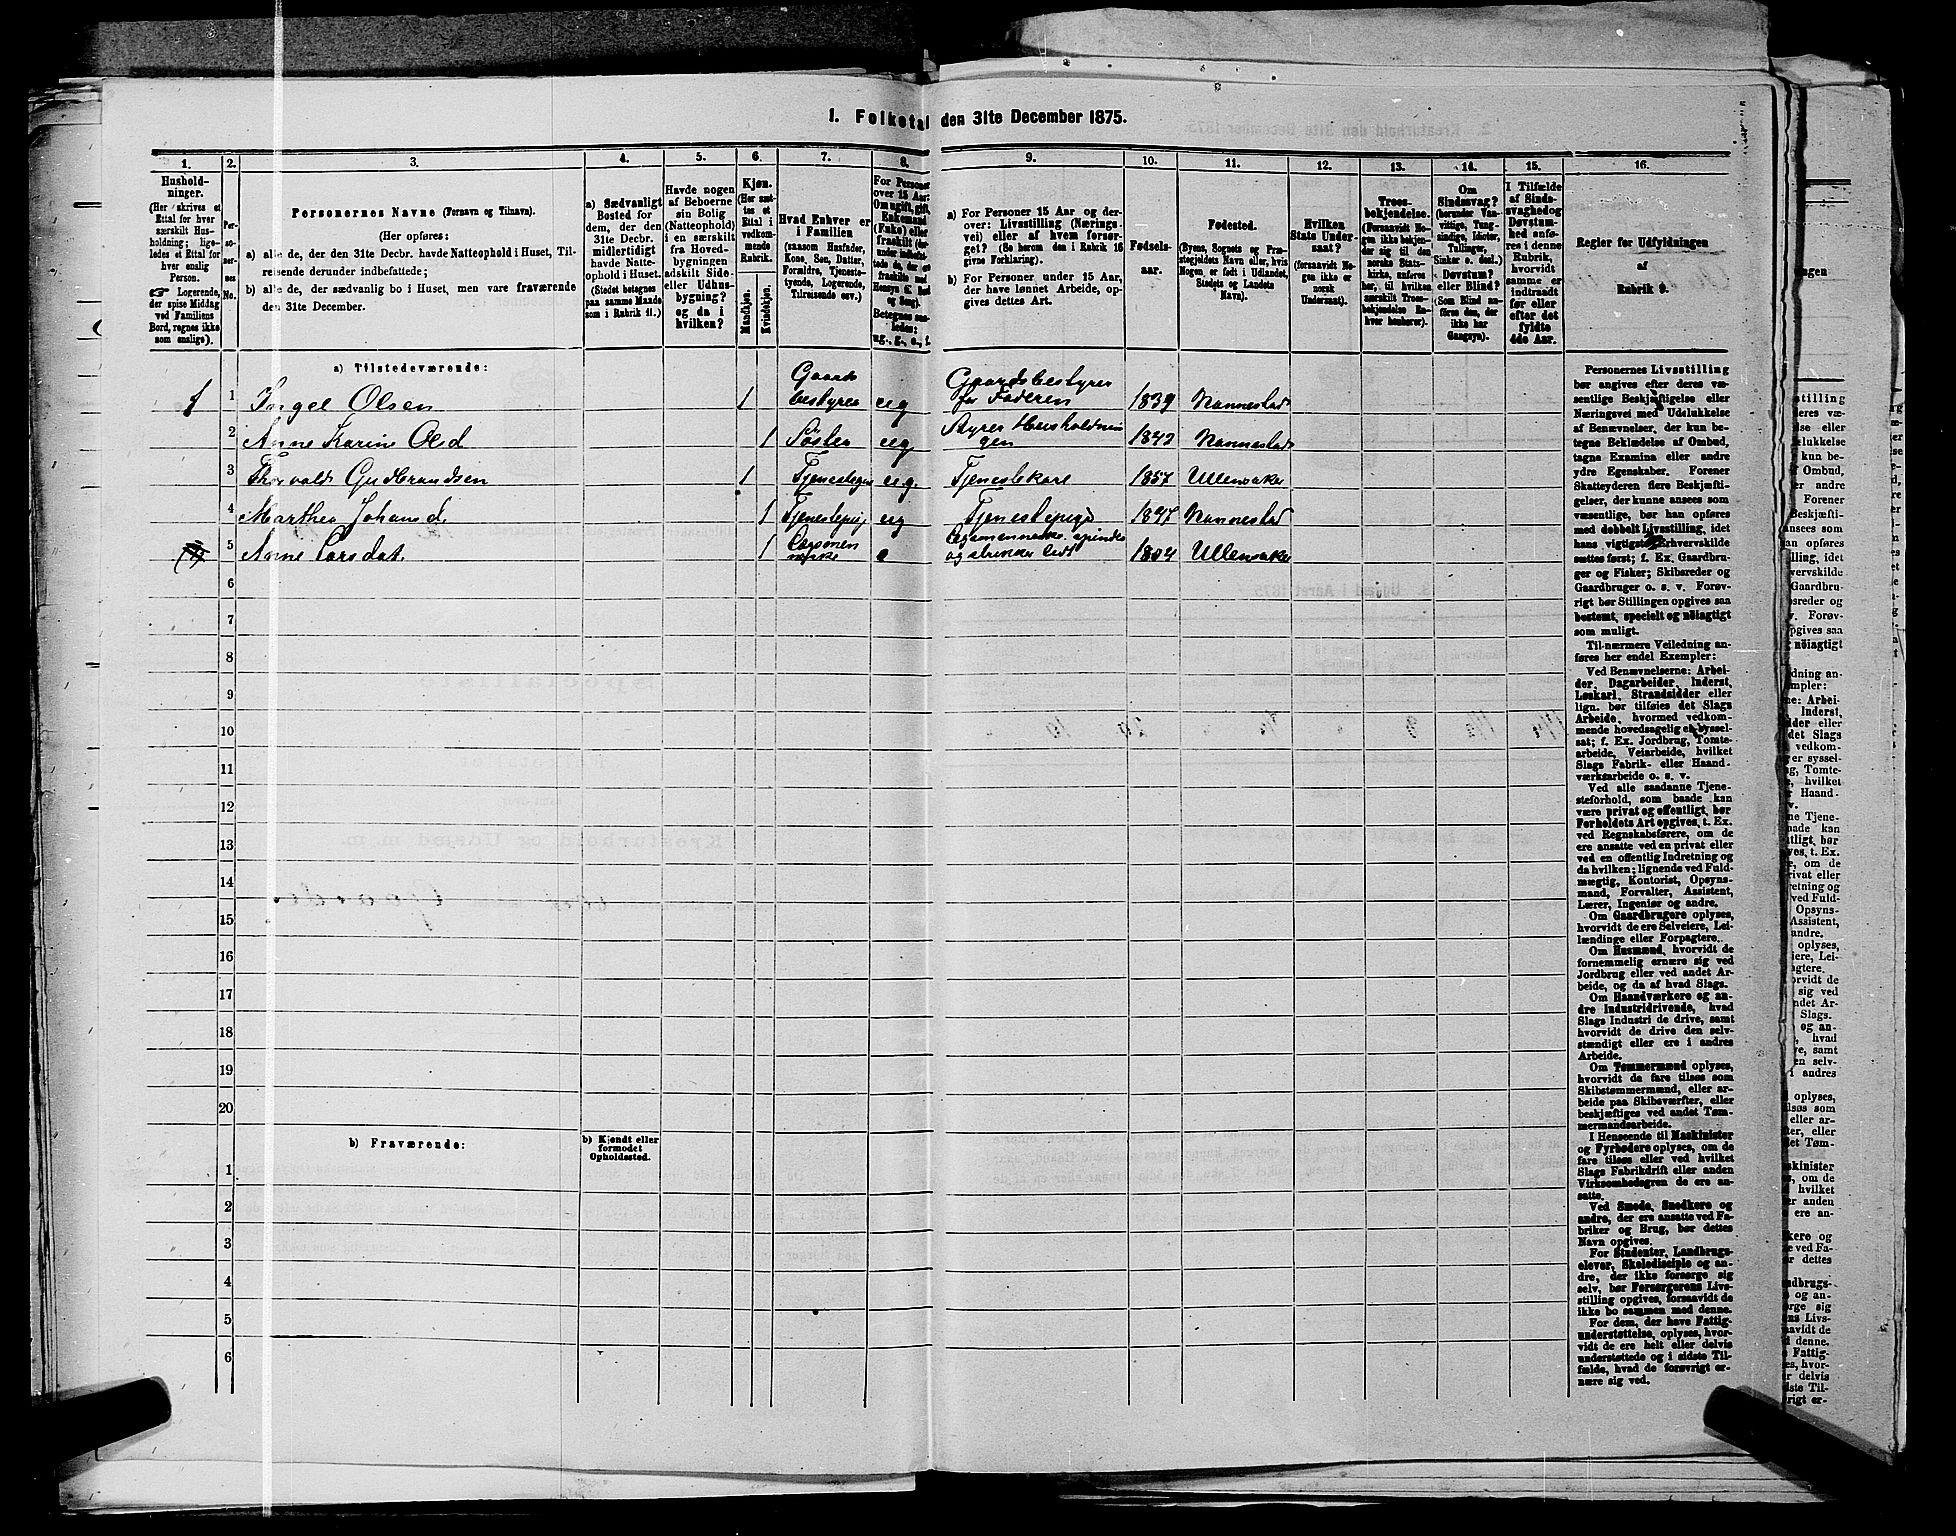 1. Folketal den 31te December 1875.
1. 2. 3. 4. 5. 6. 7. 8. 9. 10. 11. 12. 13. 14. 15. 16.
Hushold-
ninger.
(Her skrives et
Ettal for hver
særskilt Hus-
holdning; lige-
ledes et Ettal for
hver enslig
Person.
☞ Logerende,
der spise Middag
ved Familiens
Bord, regnes ikke
som enslige).
Per-
so-
ner-
nes
No.
Personernes Navne (Fornavn og Tilnavn).
(Her opføres:
a) alle de, der den 31te Decbr. havde Natteophold i Huset, Til-
reisende derunder indbefattede;
b) alle de, der sædvanlig bo i Huset, men vare fraværende
den 31te December.
a) Sædvanligt
Bosted for
dem, der den
31te Decbr.
midlertidigt
havde Natte-
ophold i Huset.
(Stedet betegnes
paa samme Maade
som i Rubrik 11.)
Havde nogen
af Beboerne
sin Bolig
(Natteophold)
i en særskilt
fra Hoved-
bygningen
adskilt Side-
eller Udhus-
bygning?
og da i
hvilken?
Kjøn.
(Her sæt-
tes et
Ettal i
vedkom-
mende
Rubrik.
Mandkjøn.
Kvindekjøn.
Hvad Enhver er
i Familien
(saasom Husfader,
Kone, Søn, Datter,
Forældre, Tjeneste-
tyende, Logerende,
Tilreisende osv.)
For Personer
over 15 Aar:
Om ugift, gift,
Enkemand
(Enke) eller
fraskilt
Betegnes saa-
ledes:
ug., g., e., f.
a) For Personer 15 Aar og der-
over: Livsstilling (Nærings-
vei) eller af hvem forsør-
get? (Se herom den i Rubrik 16
givne Forklaring).
b) For Personer under 15 Aar,
der have lønnet Arbeide, op-
gives dettes Art.
Fødsels-
aar.
Fødested.
(Byens, Sognets og Præ-
stegjeldets Navn eller, hvis
Nogen er født i Udlandet,
Stedets og Landets
Navn).
Hvilken
Stats Under-
saat?
(forsaavidt No-
gen ikke er
norsk
Undersaat).
Troes-
bekjendelse.
(Forsaavidt No-
gen ikke bekjen-
der sig til den
norske Stats-
kirke, anføres
her, til hvilken
særskilt Troes-
bekjendelse En-
hver henhører).
Om
Sindssvag?
(herunder Van-
vittige, Tung-
sindige, Idioter,
Tullinger,
Sinker o. desl.)
Døvstum?
eller Blind?
(Som Blind an-
føres den, der
ikke har
Gangsyn).
I Tilfælde
af Sinds-
svaghed og
Døvstum-
hed anfø-
res i denne
Rubrik,
hvorvidt
samme er
indtraadt
før eller
efter det
fyldte
4de Aar.
Regler for Udfyldningen
af
Rubrik 9.
a) Tilstedeværende:
1 1 Ingel Olsen 1 Gaards bestyrer ug Gaardsbestyrer for Faderen 1839 Nannestad
2 Anne Karine Olsd 1 Söster ug Styrer Husholdningen 1842 Nannestad
3 Thorvald Gudbrandsen 1 Tjenestegut ug. Tjenestekarl 1857 Ullensaker
4 Marthea Johansd. 1 Tjenestepig ug Tjenestepige 1847 Nannestad
5 Anne Larsdat. 1 Lægsmenneske e Lægsmenneske. spinder og strikker lidt 1804 Ullensaker
6
7
8
9
10
11
12
13
14
15
16
17
18
19
20
b) Fraværende:
b) Kjendt eller
formodet
Opholdssted.
1
2
3
4
5
6
Personernes Livsstilling
bør angives efter deres væ-
sentlige Beskjæftigelse eller
Næringsvei med Udelukkelse
af Benævnelser, der kun be-
tegne Beklædelse af Ombud,
tagne Examina eller andre
ydre Egenskaber. Forener
Skatteyderen flere Beskjæfti-
gelser, der kunne ansees som
væsentlige, bør han opføres
med dobbelt Livsstilling, idet
hans vigtigste Erhvervskilde
sættes først; f. Ex. Gaardbru-
ger og Fisker; Skibsreder og
Gaardbruger o. s. v. Forøv-
rigt bør Stillingen opgives saa
bestemt, specielt og nöiagtigt
som muligt.
Til nærmere Veiledning an-
føres her endel Exempler:
Ved Benævnelserne: Arbei-
der, Dagarbeider, Inderst,
Løskarl, Strandsidder eller
lign. bør tilføies det Slags
Arbeide, hvormed vedkom-
mende hovedsagelig er syssel-
sat; f. Ex. Jordbrug, Tomte-
arbeide, Veiarbeide, hvilket
Slags Fabrik- eller Haand-
værksarbeide o. s. v.
Ved alle saadanne Tjene-
steforhold, som baade kan
være privat og offentligt, bør
Forholdets Art opgives, t. Ex.
ved Regnskabsførere, om de
ere ansatte ved en privat eller
ved en offentlig Indretning og
da hvilken; lignende ved Fuld-
mægtig, Kontorist, Opsyns-
mand, Forvalter, Assistent,
Lærer, Ingeniør og andre.
Om Gaardbrugere oplyses,
hvorvidt de ere Selveiere, Lei-
lændinge eller Forpagtere.
Om Husmænd, hvorvidt de
fornemmelig ernære sig ved
Jordbrug eller ved andet Ar-
beide, og da af hvad Slags.
Om Haandværkere og an-
dre Industridrivende, hvad
Slags Industri de drive, samt
hvorvidt de drive den selv-
stændigt eller ere i andres
Arbeide.
Om Tømmermænd oplyses,
hvorvidt de fare tilsøs som
Skibstømmermænd, eller ar-
beide paa Skibsværfter, eller
beskjæftiges ved andet Tøm-
mermandsarbeide.
I Henseende til Maskinister
og Fyrbødere oplyses, om de
fare tilsøs eller ved hvilket
Slags Fabrikdrift eller anden
Virksomhedsgren de ere an-
satte.
Ved Smede, Snedkere og
andre, der ere ansatte ved Fa-
briker og Brug, bør dettes
Navn opgives.
For Studenter, Landbrugs-
elever, Skoledisciple og an-
dre, der ikke forsørge sig
selv, bør Forsørgerens Livs-
stilling opgives, forsaavidt de
ikke bo sammen med denne.
For dem, der have Fattig-
understøttelse, oplyses, hvor-
vidt de ere helt eller delvis
understøttede og i sidste Til-
fælde, hvad de forøvrigt er-
nære sig ved.